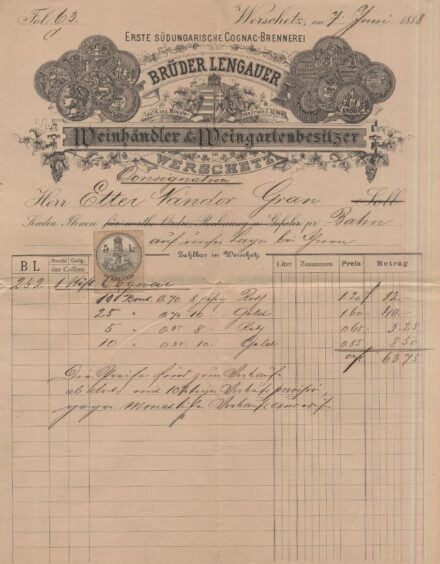 Fol. 63. Werschetz, am 7. Juni 1888
ERSTE SÜDUNGARISCHE COGNAC-BRENNEREI
BRÜDER LENGAUER
Weinhändler & Weingartenbesitzer
in
WERSCHETZ
Consignation
Herr Etter Nándor Gran Soll
Senden Ihnen für werthe Ordre, Rechnung u. Gefahr pr Bahn
auf unser Lager bei Ihnen
Zahlbar in Werschetz.
BL Anzahl Gattg. der Collien Liter Zusammen Preis Betrag
5 kr.
252 1 Kiste Cognac
10 Bout. 0.70 8 Roth 1.20 12.—
25 " 0.70 10 Gold 1.60 40.—
5 " 0.35 8 Roth 0.65 3.25
10 " 0.35 10 Gold 0.85 8.50
63.75
Die Preise sind zum Verkauf
mit 10
gegen